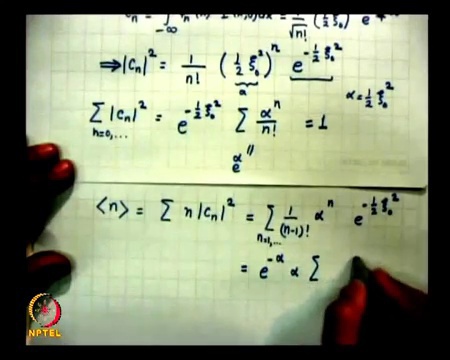 ⇒|Cₙ|² = 1/n! (½ ξ₀²)ⁿ e^(-½ ξ₀²)
α
α = ½ ξ₀²
Σ_(n=0,...) |Cₙ|² = e^(-½ ξ₀²) Σ αⁿ/n! = 1
"
e^α
⟨n⟩ = Σ n|Cₙ|² = Σ_(n=1,...) 1/(n-1)! αⁿ e^(-½ ξ₀²)
= e^(-α) α Σ
NPTEL